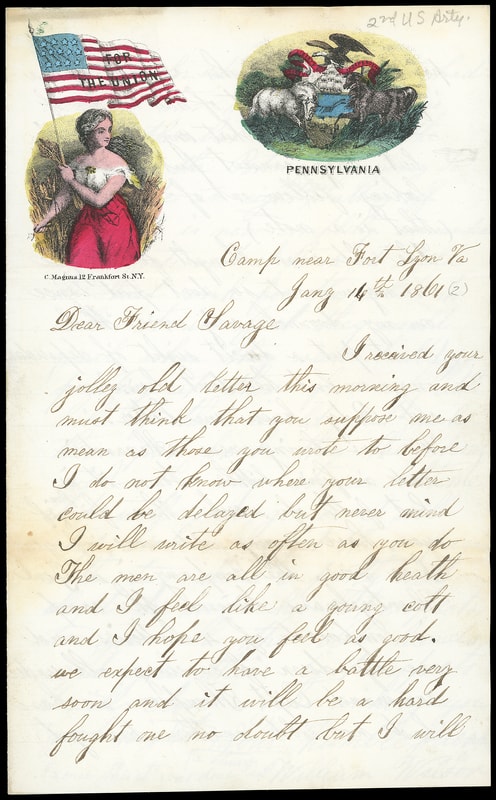 2nd U S Arty.
FOR
THE UNION
PENNSYLVANIA
C. Magnus 12 Frankfort St. N.Y.
Camp near Fort Lyon Va
Jany 14th 1861 (2)
Dear Friend Savage
I received your
jolley old letter this morning and
must think that you suppose me as
mean as those you wrote to before
I do not know where your letter
could be delayed but never mind
I will write as often as you do
The men are all in good heath
and I feel like a young colt
and I hope you feel as good.
we expect to have a battle very
soon and it will be a hard
fought one no doubt but I will